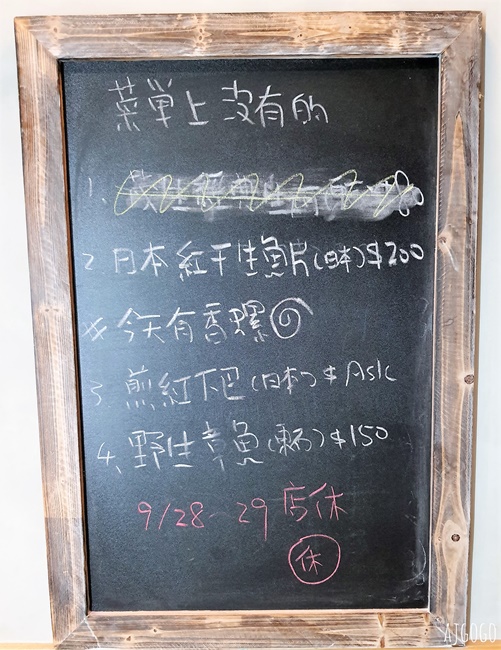 菜單上沒有的
1、
2 日本紅干生魚片(日本)$200
※今天有香螺
3 煎紅下巴(日本)$Ask
4、野生章魚()$150
9/28-29店休
休
AJGOGO